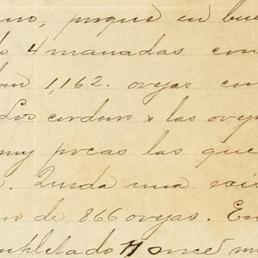 no, porque en bue
o 4 manadas con
an 1,162. ovejas con
Los corderos & las ovej
muy pocas las que
Queda una exis
de 866 ovejas. En
mpletado 11 once m